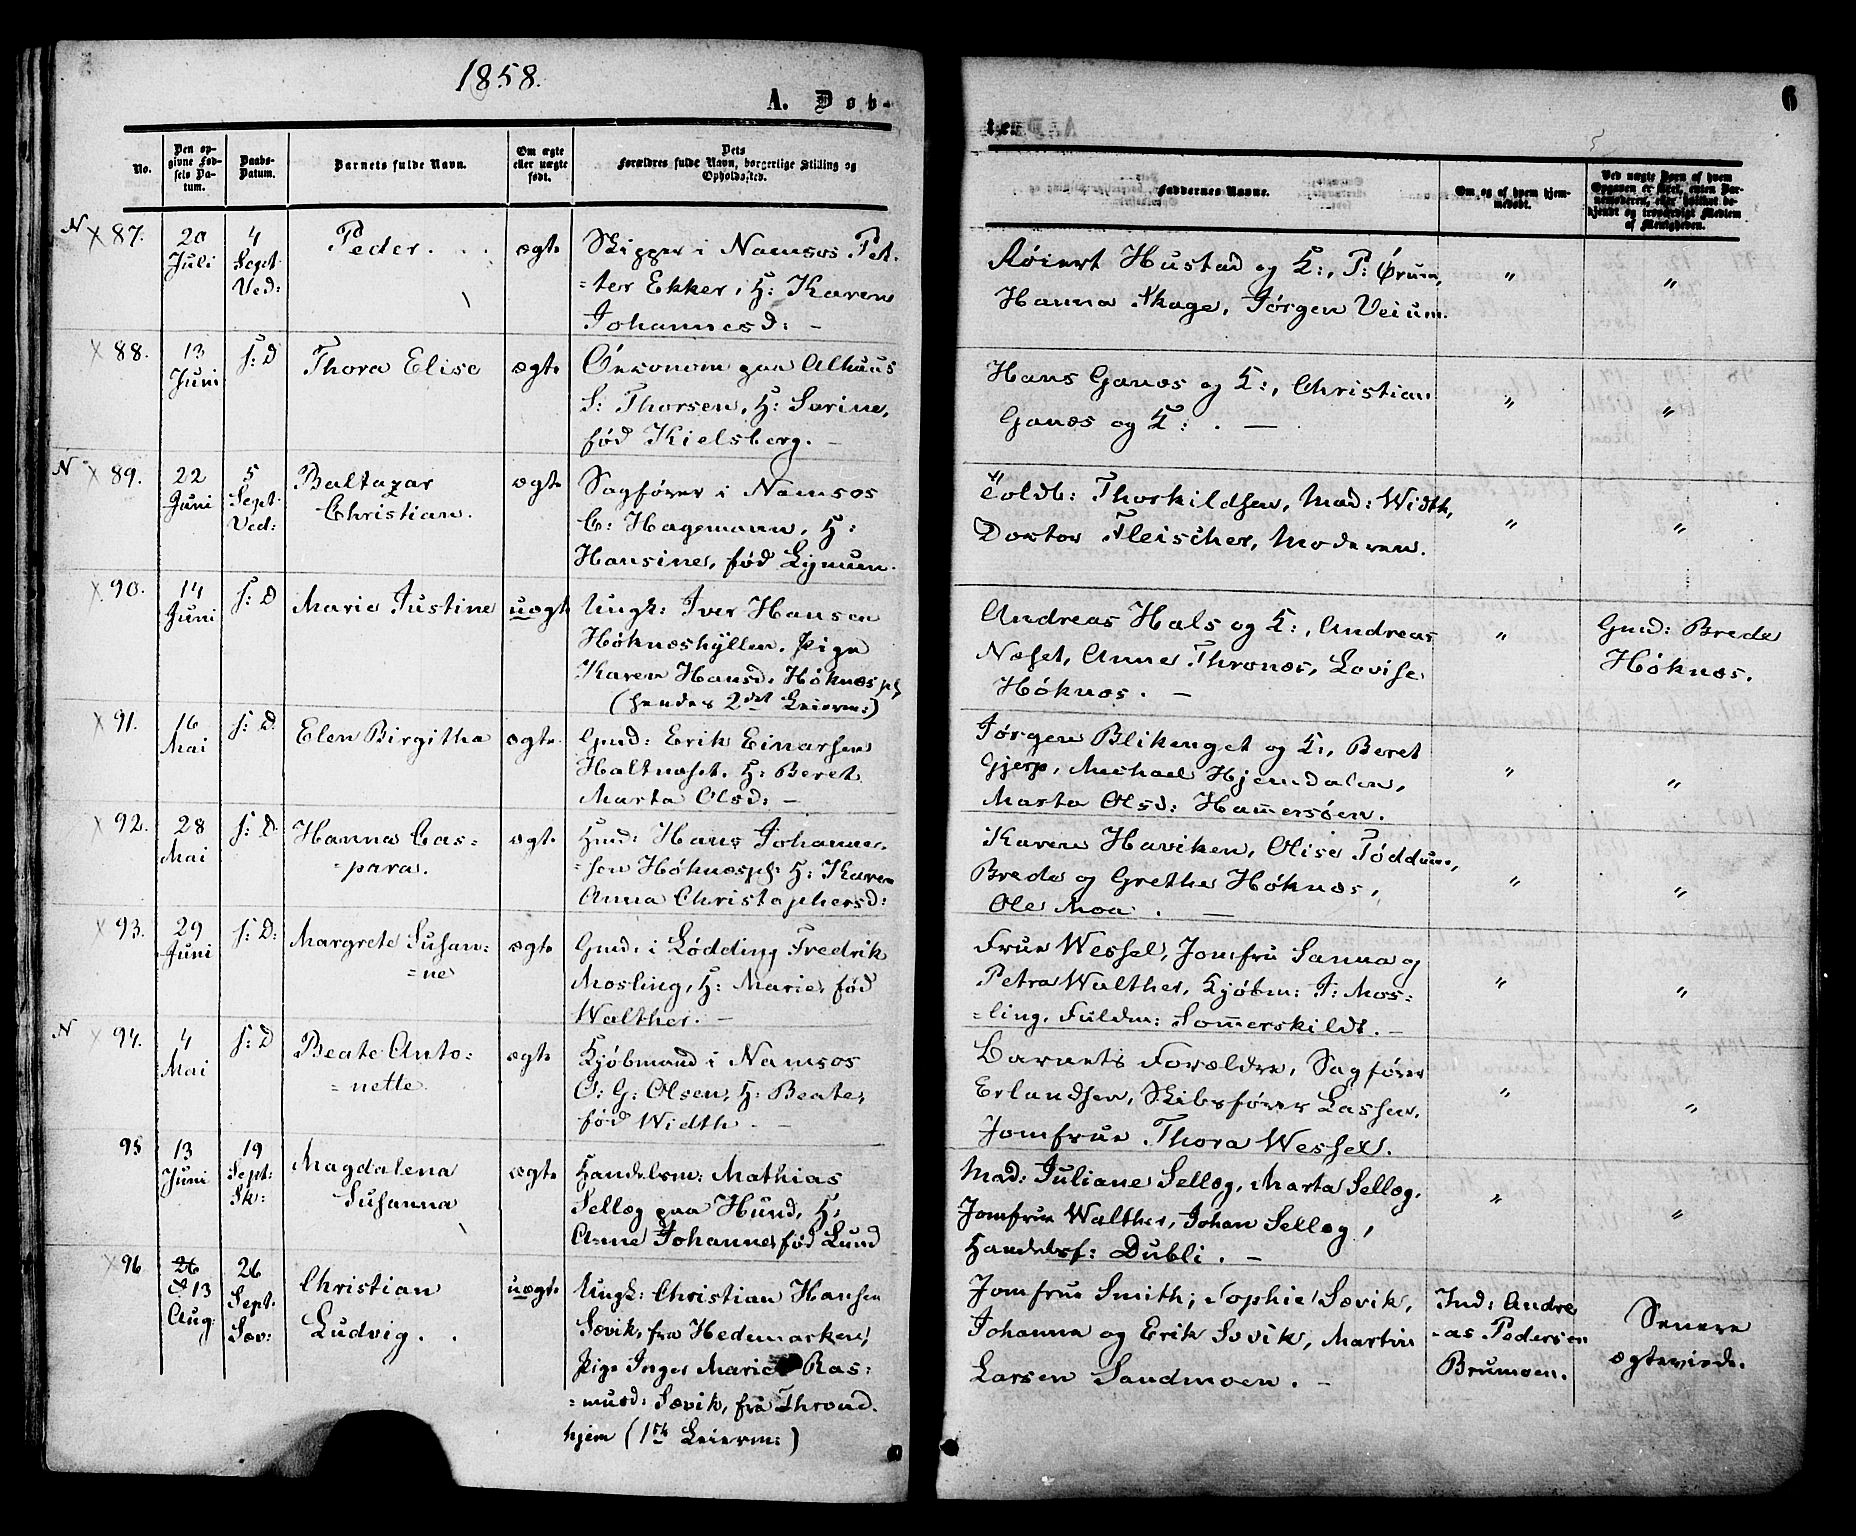 1858.
A. Døb-
te.
6
No.
Den op-
givne Fød-
sels Da-
tum.
Daabs-
Datum.
Barnets fulde Navn.
Om ægte
eller uægte
født.
Dets
Forældres fulde Navn, borgerlige Stilling og
Opholdssted.
Faddernes Navne.
Om og af hvem hjem-
medøbt.
Ved uægte Børn af hvem
Opgaven er skeet, enten Bar-
nemoderen, eller hvilket be-
kjendt og troværdigt Medlem
af Menigheden.
N × 87.
20
Juli
4
Sept.
Ved:
Peder. . .
ægte
Skipper i Namsos Pet-
=ter Ekker, H: Karen
Johannesd: -
Røiert Hustad og K:, P: Ørum,
Hanna Skage, Jørgen Veium.
"
"
× 88.
13
Juni
s: D
Thora Elise
ægte
Oeconom paa Alhuus
S: Thorsen, H: Sorine,
fød Kielsberg. -
Hans Ganæs og K:, Christian
Ganæs og K: . —
"
"
N × 89.
22
Juni
5
Sept.
Ved:
Baltazar
Christian.
ægte
Sagfører i Namsos
C: Hagemann, H:
Hansine, fød Lynum.
Toldb: Thorkildsen, Mad: Width,
Doctor Fleischer, Moderen.
"
"
× 90.
14
Juni
s: D
Marie Justine
uægte
Ungk: Iver Hansen
Høknæshyllen. Pige
Karen Hansd: Høknæspl
(hendes 2det Leierm:)
Andreas Hals og K:, Andreas
Næset, Anne Thronæs, Lovise
Høknæs. -
"
Gmd: Brede
Høknæs.
× 91.
16
Mai
s: D.
Elen Birgitha
ægte.
Gmd: Erik Einarsen
Haltnæset. H: Beret
Marta Olsd: -
Jørgen Blikenget og K:, Beret
Gjerp, Michael Hjemdalen,
Marta Olsd: Hammersøen.
"
"
× 92.
28
Mai
s: D.
Hanna Cas=
=para.
ægte.
Hmd: Hans Johanne-
=sen Høknæspl: H: Karen
Anna Christophersd:
Karen Haviken, Olise Føddum,
Brede og Grethe Høknæs,
Ole Moa . —
"
"
× 93.
29
Juni
s: D:
Margrete Susan=
=ne
ægte.
Gmd: i Lødding Fredrik
Mosling, H: Marie, fød
Walther. -
Frue Wessel, Jomfru Sanna og
Petra Walther, Kjøbm: J: Mos=
=ling, Fuldm: Sommerskildt. -
"
"
N × 94.
4
Mai
s: D
Beate Anto=
=nette.
ægte
Kjøbmand i Namsos
O: G: Olsen, H: Beate,
fød Width. -
Barnets Forældre, Sagfører
Erlandsen, Skibsfører Lassen,
Jomfrue Thora Wessel.
"
"
95
13
Juni
19
Sept:
Sk:
Magdalena
Susanna
ægte.
Handelsm: Mathias
Sellæg paa Hund, H:
Anne Johanne, fød Lund
Mad: Juliane Sellæg, Marta Sellæg,
Jomfrue Walther, Johan Sellæg,
Handelsf: Dubli. -
"
"
× 96
26
d 13
Aug:
26
Sept.
Sæv:
Christian
Ludvig. .
uægte.
Ungk: Christian Hansen
Sævik, fra Hedemarken,
Pige Inger Marie Ras=
=musd: Sævik, fra Thrond-
hjem (1ste Leierm:)
Jomfrue Smith, Sophie Sævik,
Johanna og Erik Sævik, Martin
Larsen Sandmoen. -
Ind: Andre
=as Pedersen
Brumoen.
Senere
ægteviede.